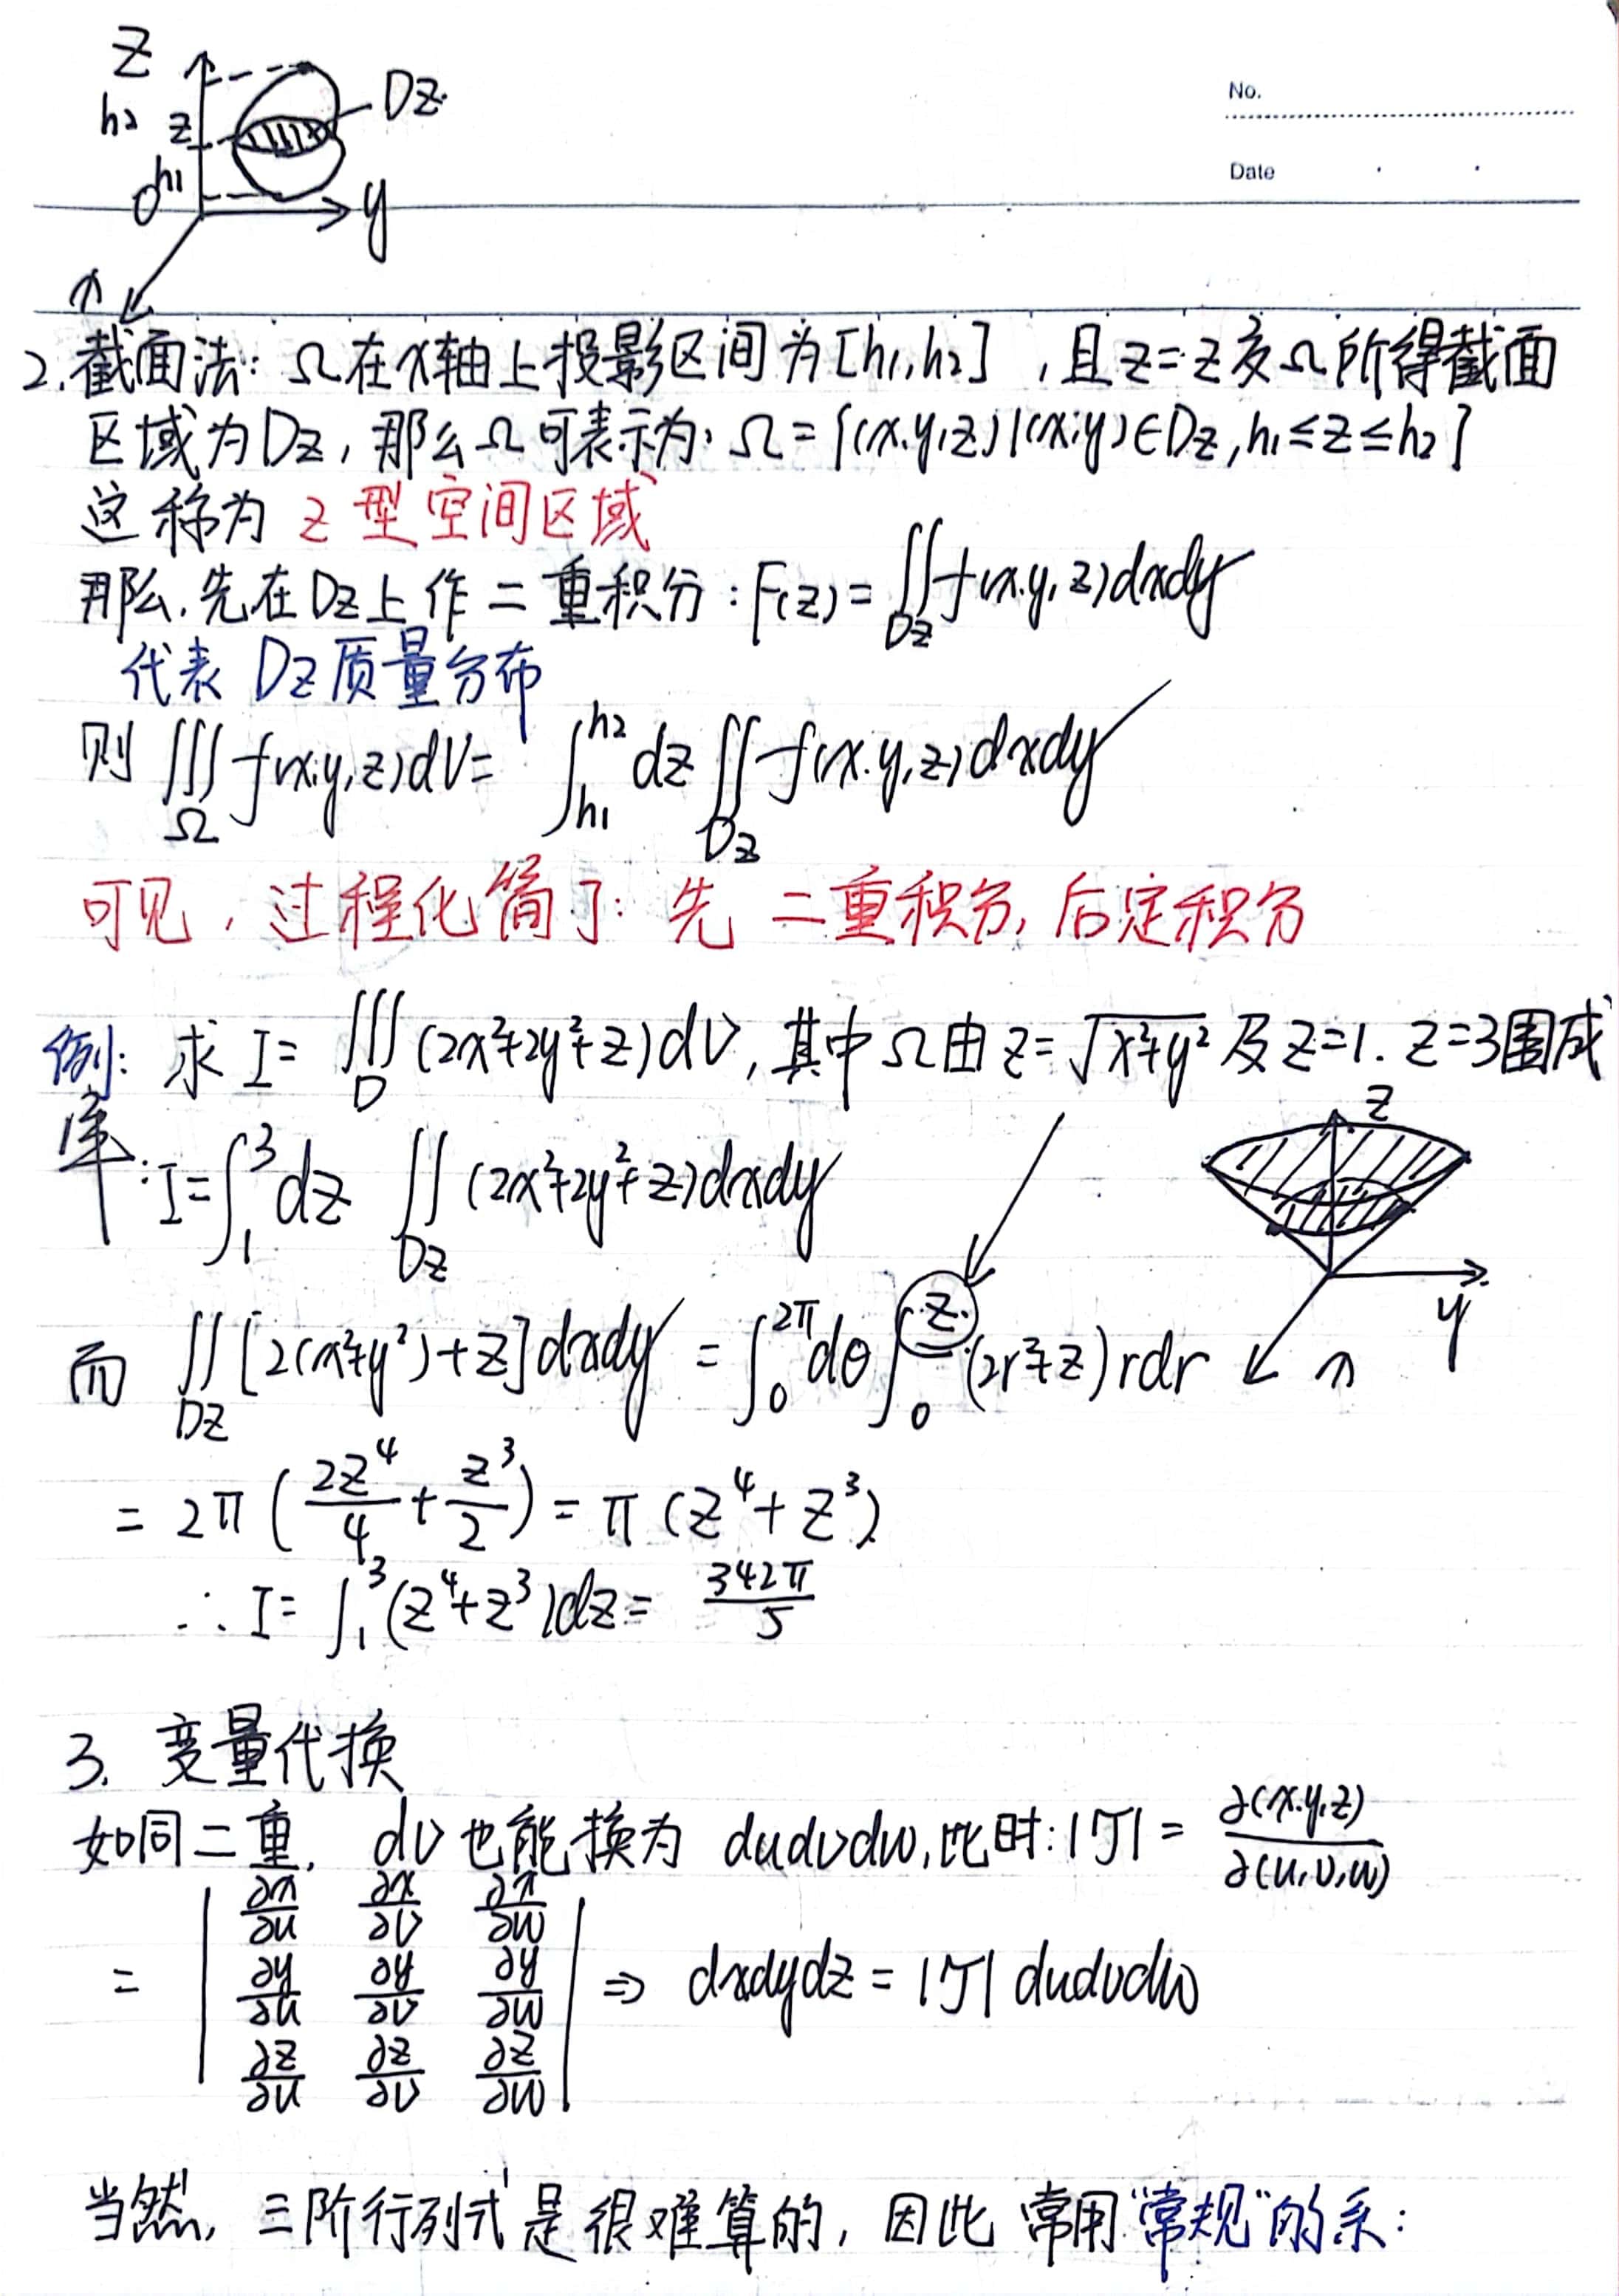 No.
Date
z
h2 z
Dz
h1
O
y
x
2. 截面法: Ω在x轴上投影区间为[h1,h2],且z=z交Ω所得截面
区域为Dz,那么Ω可表示为: Ω={(x,y,z)|(x,y)∈Dz,h1≤z≤h2}
这称为z型空间区域
那么,先在Dz上作二重积分:F(z)=∬_{Dz}f(x,y,z)dxdy
代表Dz质量分布
则∭_Ω f(x,y,z)dV=∫_{h1}^{h2}dz∬_{Dz}f(x,y,z)dxdy
可见,过程化简了:先二重积分,后定积分
例: 求I=∭_D(2x²+2y²+z)dV,其中Ω由z=√(x²+y²)及z=1. z=3围成
z
解: I=∫_1^3dz∬_{Dz}(2x²+2y²+z)dxdy
y
x
而∬_{Dz}[2(x²+y²)+z]dxdy=∫_0^{2π}dθ∫_0^z(2r²+z)rdr
=2π(2z⁴/4+z³/2)=π(z⁴+z³)
∴I=∫_1^3(z⁴+z³)dz=342π/5
3. 变量代换
如同二重, dV也能换为dudvdw,此时:|J|=∂(x,y,z)/∂(u,v,w)
=|∂x/∂u ∂x/∂v ∂x/∂w
∂y/∂u ∂y/∂v ∂y/∂w
∂z/∂u ∂z/∂v ∂z/∂w| ⇒ dxdydz=|J|dudvdw
当然,三阶行列式是很难算的,因此常用“常规”的系: